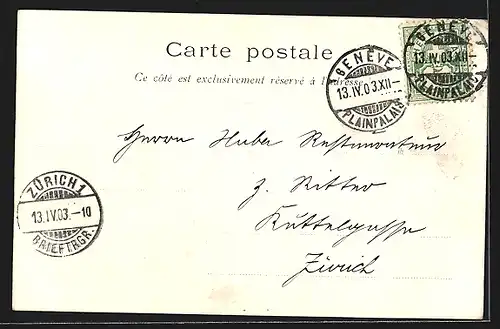 Carte postale
Ce côté est exclusivement réservé à l'adresse.
GENÈVE
13.IV.03.XII—
PLAINPALAIS
GENÈVE
13.IV.03.XII—
PLAINPALAIS
Herrn Huber Restaurateur
z. Ritter
Kuttelgasse
Zürich
ZÜRICH 1
13.IV.03.—10
BRIEFTRGR.